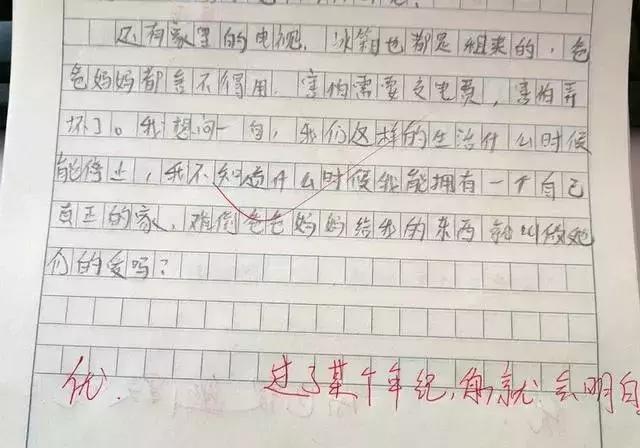 还有家里的电视．冰箱也都是租来的，爸
爸妈妈都舍不得用．害怕需要交电费，害怕弄
坏了。我想问一句，我们这样的生活什么时候
能停止，我不知道什么时候我能拥有一个自己
真正的家，难倒爸爸妈妈给我的东西就叫做她
们的爱吗？
优． 过了某个年纪，你就会明白